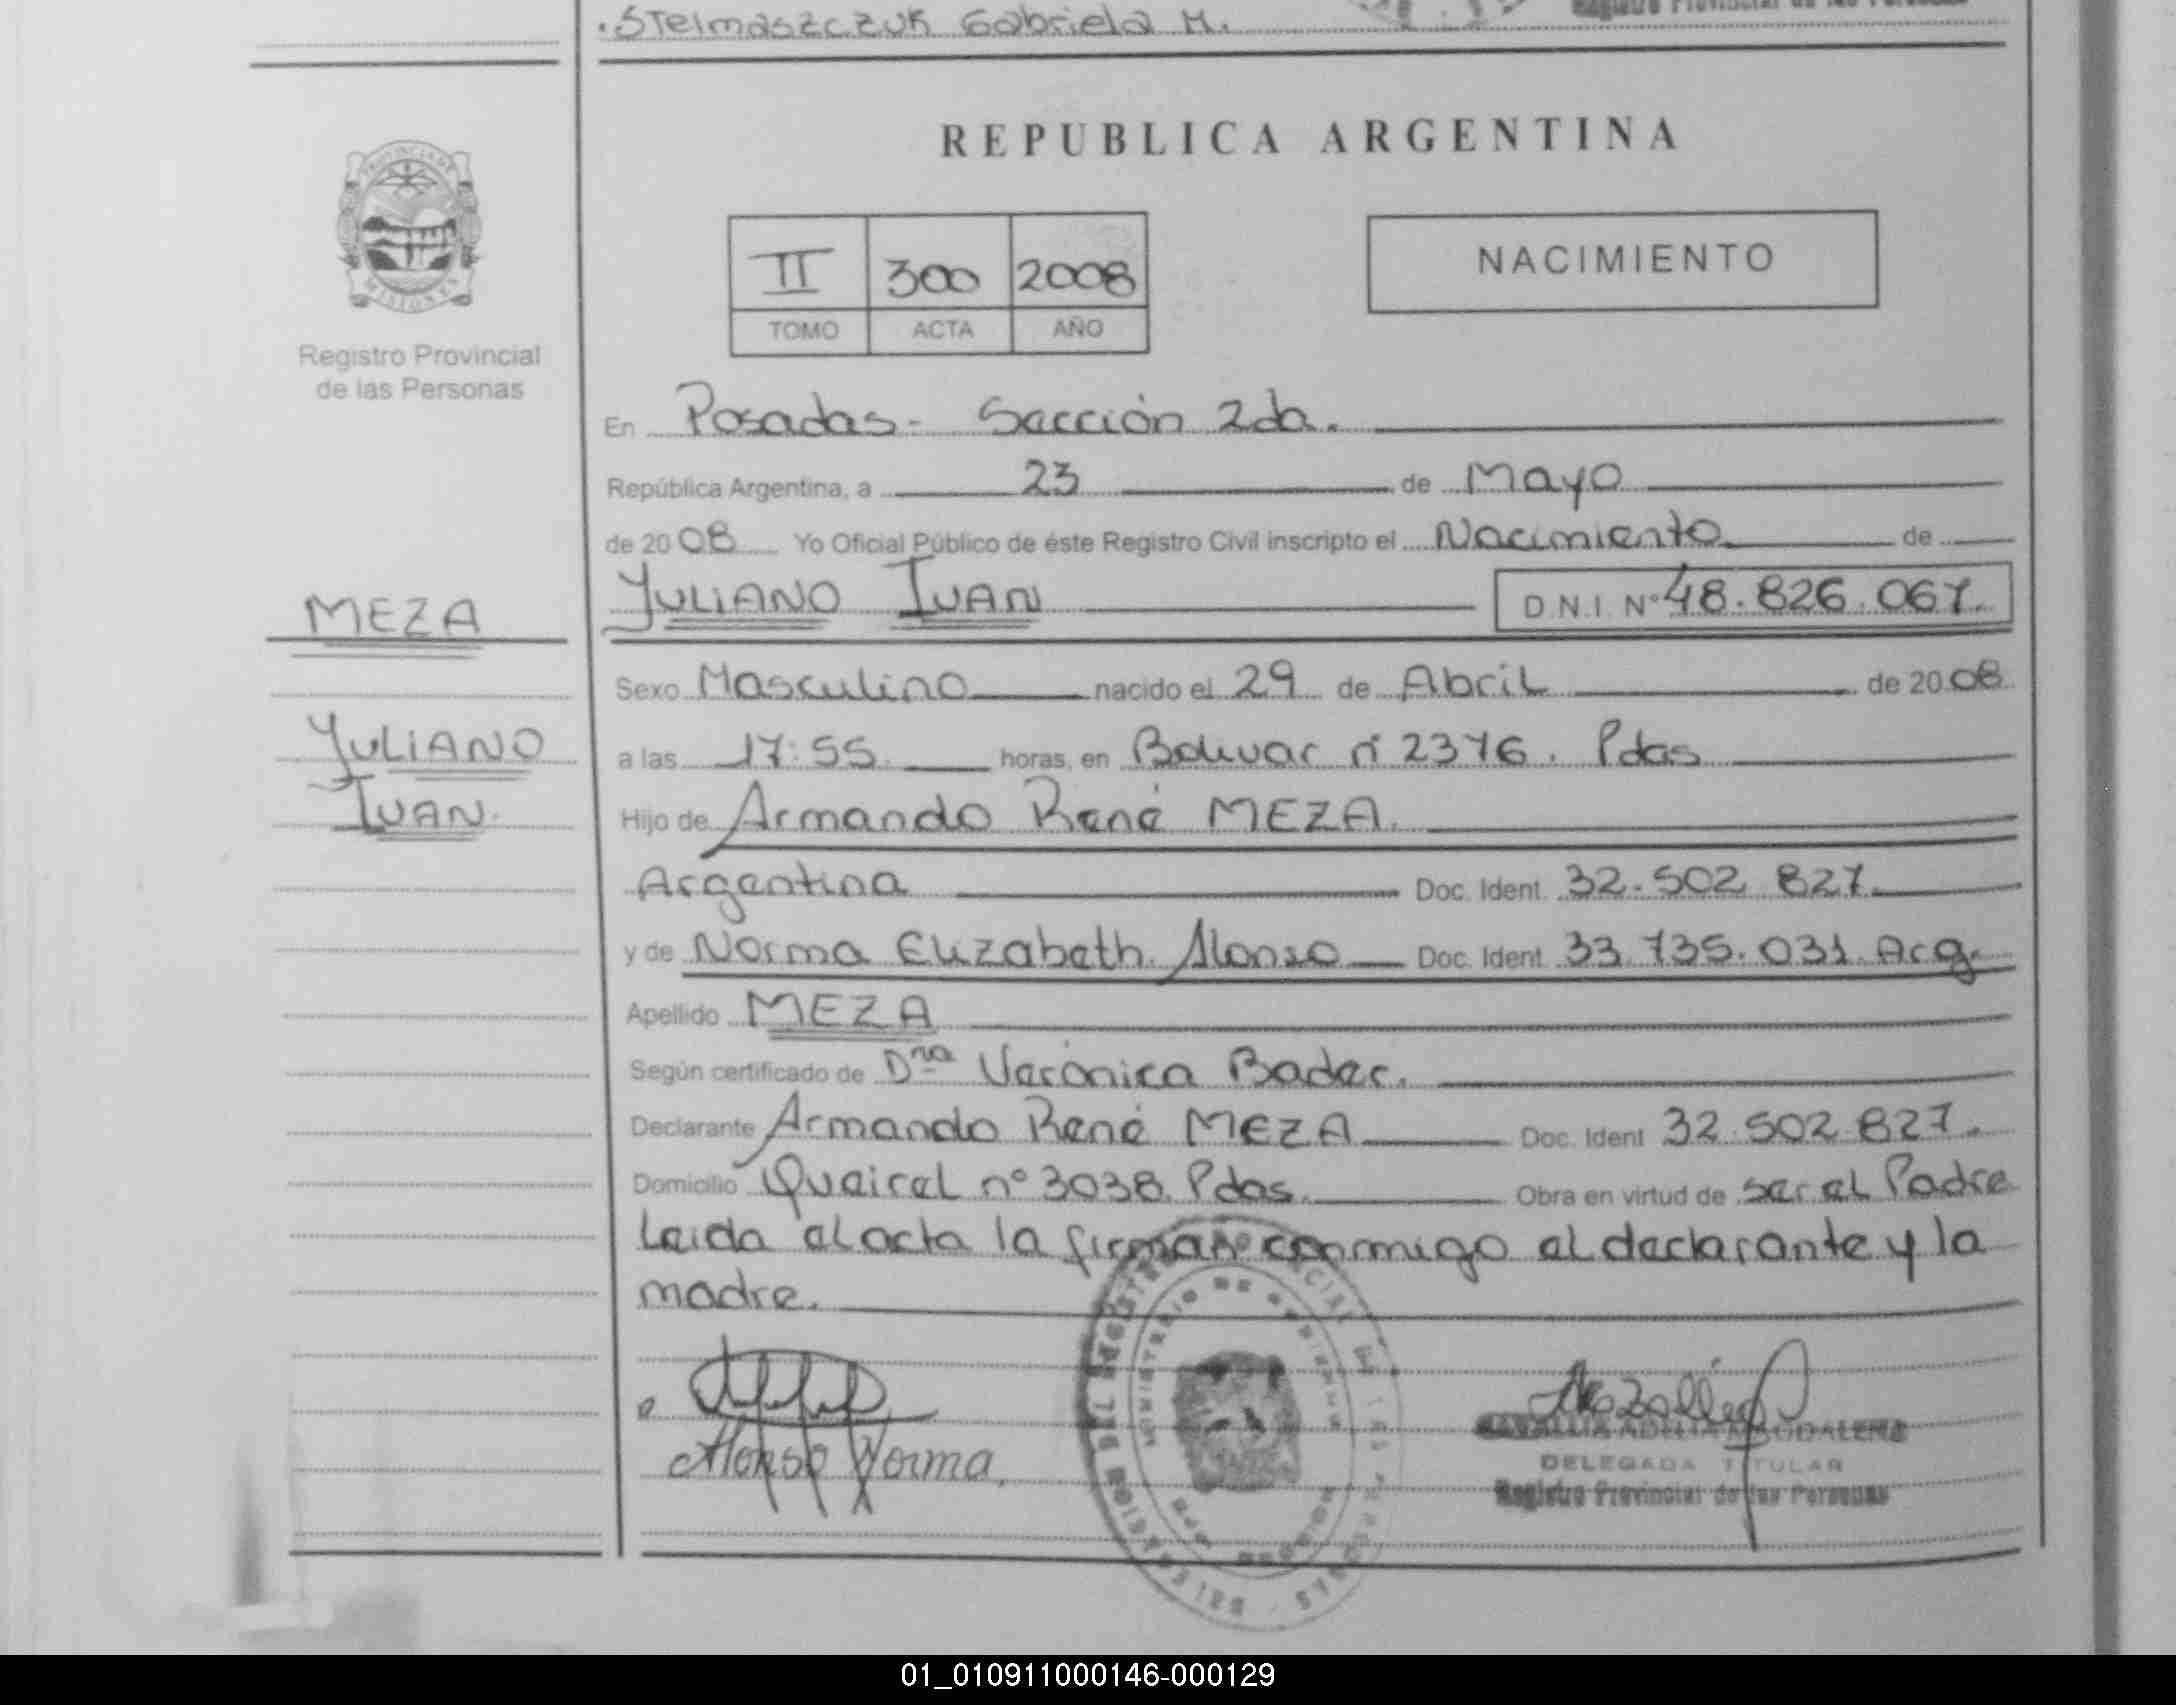 .Stelmaszczuk Gabriela M.
REPUBLICA ARGENTINA
PROVINCIA DE
MISIONES
Registro Provincial
de las Personas
II 300 2008
TOMO ACTA AÑO
NACIMIENTO
En Posadas - Sección 2da.
República Argentina, a 23 de Mayo
de 2008 Yo Oficial Público de éste Registro Civil inscripto el Nacimiento de
MEZA
YULIANO IVAN D.N.I. Nº 48.826.067.
Sexo Masculino nacido el 29 de Abril de 2008
YULIANO
a las 17:55 horas, en Bolivar nº 2376. Pdas
IVAN.
Hijo de Armando René MEZA.
Argentina Doc. Ident. 32.502.827.
y de Norma Elizabeth Alonso Doc. Ident. 33.735.031. Arg.
Apellido MEZA
Según certificado de Dra Verónica Bader.
Declarante Armando René MEZA Doc. Ident 32.502.827.
Domicilio nº 3038 Pdas. Obra en virtud de ser el Padre
Leida el acta la firman conmigo el declarante y la
madre.
Alonso Norma.
ADELIA MAGDALENA
DELEGADA TITULAR
Registro Provincial de las Personas
01_010911000146-000129